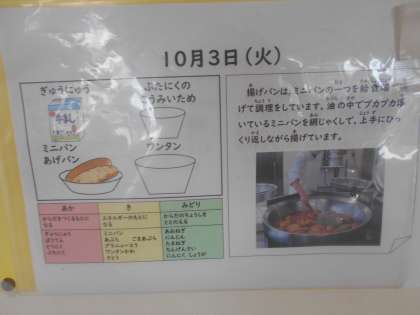 10月3日(火)
ぎゅうにゅう
ぶたにくの
うみいため
ミニパン
あげパン
ワンタン
揚げパンは、ミニパンの一つを給食
げて調理をしています。油の中でプカプカ浮
いているミニパンを網じゃくしで、上手にひっ
くり返しながら揚げています。
あか
き
みどり
からだをつくるもとに
なる
エネルギーのもとに
なる
からだのちょうしを
ととのえる
ぎゅうにゅう
ぶたにく
ミニパン
あぶら ごまあぶら
グラニューとう
ワンタンかわ
さとう
あおねぎ
にんじん
たまねぎ
ちんげんさい
にんにく しょうが